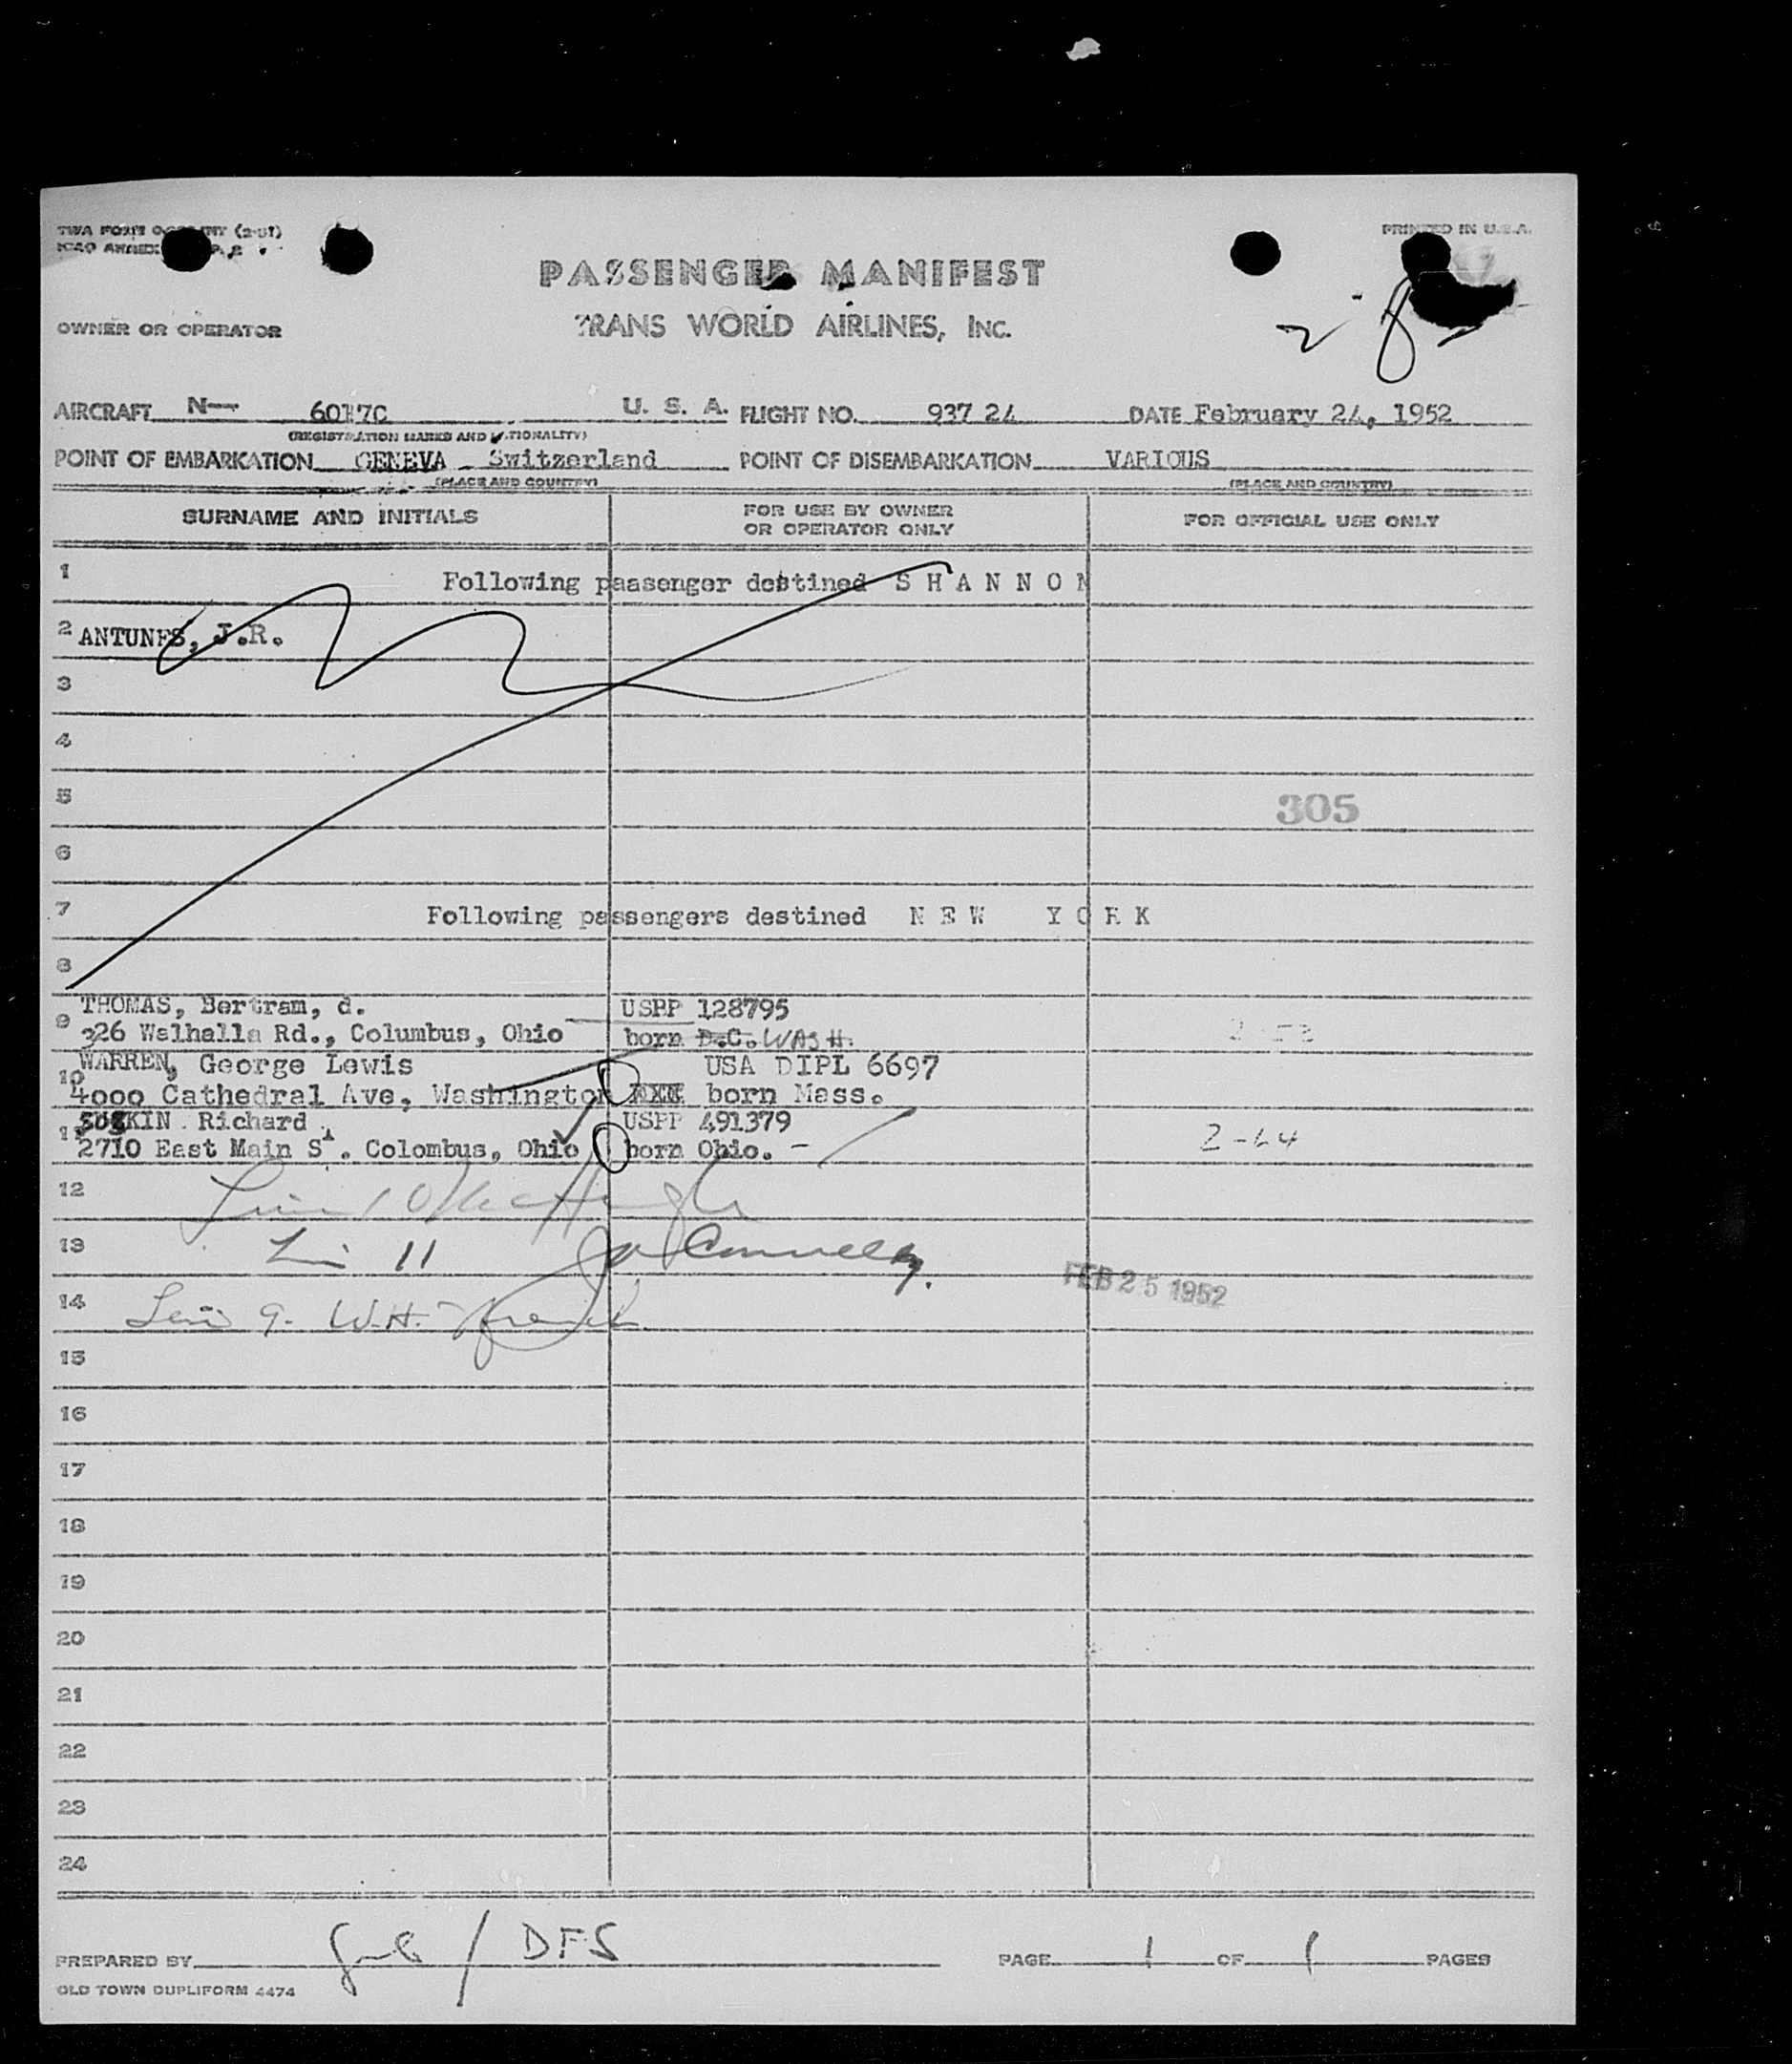 PRINTED IN U.S.A.
PASSENGER MANIFEST
OWNER OR OPERATOR TRANS WORLD AIRLINES, INC.
AIRCRAFT N— 6017C U. S. A. FLIGHT NO. 937 24 DATE February 24, 1952
(REGISTRATION MARKS AND NATIONALITY)
POINT OF EMBARKATION GENEVA - Switzerland POINT OF DISEMBARKATION VARIOUS
(PLACE AND COUNTRY) (PLACE AND COUNTRY)
SURNAME AND INITIALS FOR USE BY OWNER OR OPERATOR ONLY FOR OFFICIAL USE ONLY
1 Following paasenger destined S H A N N O N
2 ANTUNES, J.R.
3
4
5 305
6
7 Following passengers destined N E W Y O R K
8
9 THOMAS, Bertram, d. USPP 128795
326 Walhalla Rd., Columbus, Ohio born D.C. WASH.
10 WARREN, George Lewis USA DIPL 6697
4000 Cathedral Ave, Washington born Mass.
11 Richard USPP 491379
2710 East Main St. Colombus, Ohio born Ohio. - 2-64
12
13 Connelly
14
FEB 25 1952
15
16
17
18
19
20
21
22
23
24
PREPARED BY / DFS PAGE 1 OF 1 PAGES
OLD TOWN DUPLIFORM 4474